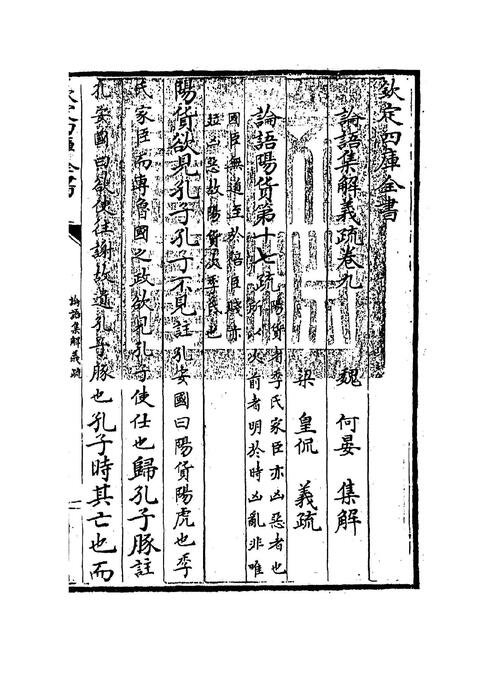 欽定四庫全書
論語集解義疏卷九
魏 何晏 集解
梁 皇侃 義疏
論語陽貨第十七疏陽貨者季氏家臣亦凶惡者也
所以次前者明於時凶亂非唯
國臣無道至於陪臣賤亦
並凶惡故陽貨次季氏也
陽貨欲見孔子孔子不見註孔安國曰陽貨陽虎也季
氏家臣而專魯國之政欲見孔子使仕也歸孔子豚註
孔安國曰欲使往謝故遺孔子豚也孔子時其亡也而
欽定四庫全書
論語集解義疏
一